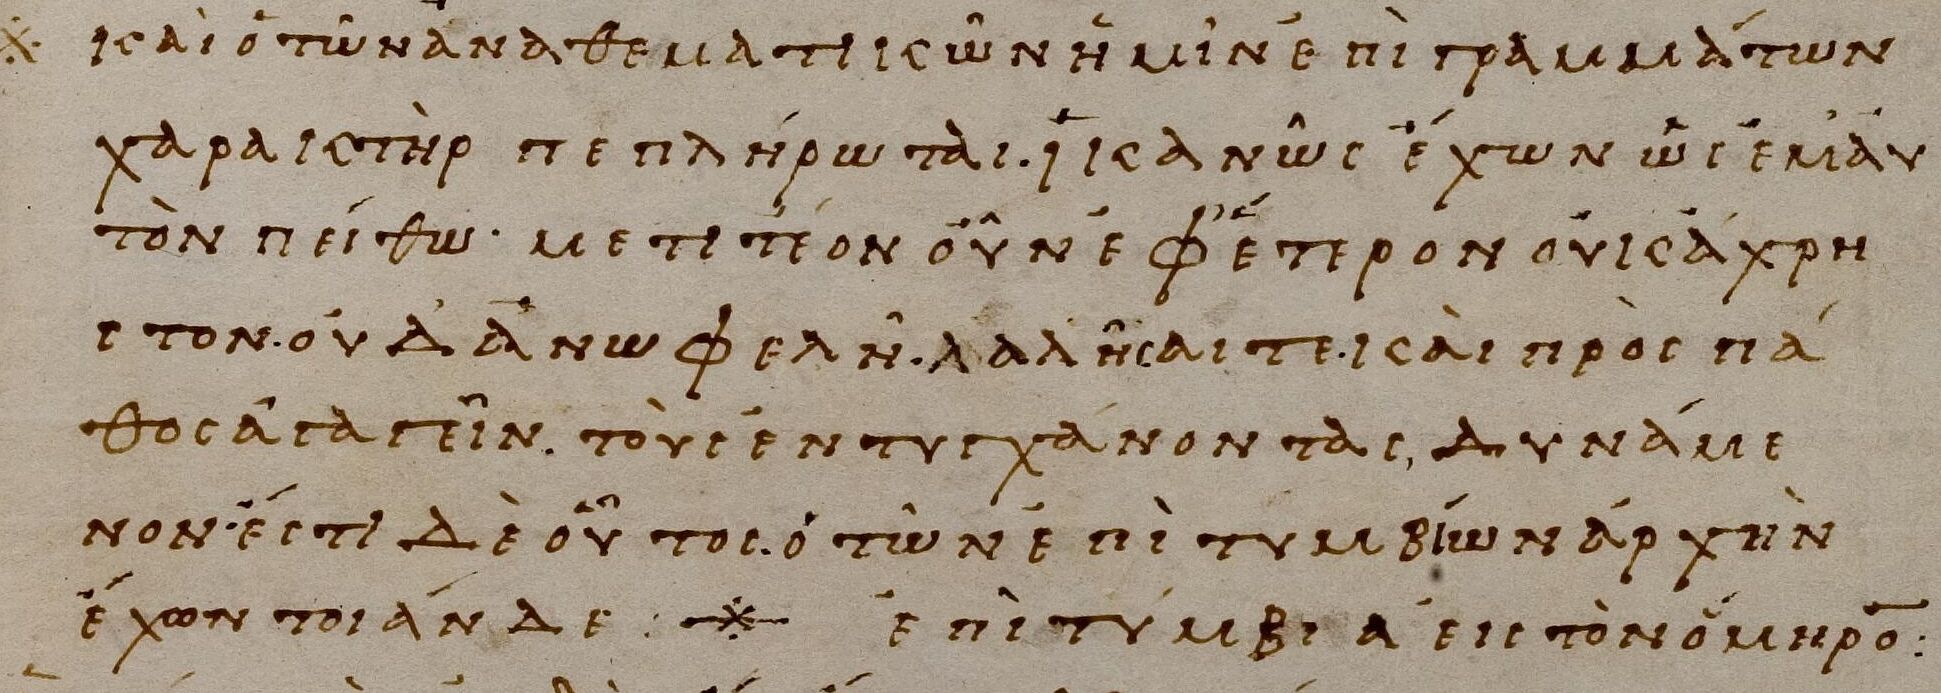 καὶ ὁ τῶν ἀναθεματικῶν ἡμῖν ἐπιγραμμάτων
χαρακτὴρ πεπλήρωται. ἱκανῶς ἔχων ὡς ἐμαυ
τὸν πείθω· μετιτέον οὖν ἐφ' ἕτερον οὐκ ἄχρη
στον. οὐδ' ἀνωφελῆ. λαλῆσαί τε. καὶ πρὸς πά
θος ἀγαγεῖν. τοὺς ἐντυγχάνοντας, δυνάμε
νον· ἔστι δὲ οὗτος. ὁ τῶν ἐπιτυμβίων ἀρχὴν
ἔχων τοιάνδε : ※ ἐπιτύμβια εἰς τὸν ὅμηρο̄: